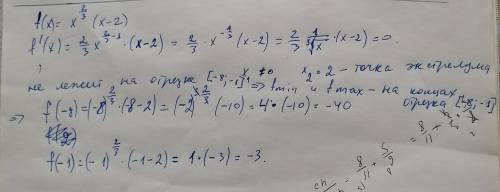 f(x) = x^{2/3} (x-2)
f'(x) = 2/3 x^{2/3 - 1} · (x-2) = 2/3 · x^{-1/3} (x-2) = 2/3 · 1/∛x · (x-2) = 0.
x ≠ 0 x₂ = 2 – точка экстремума
не лежит на отрезке [-8; -1] ⇒ fmin и fmax – на концах
отрезка [-8; -1]
⇒ f(-8) = (-8)^{2/3} · (-8-2) = (-2)^{3·2/3} · (-10) = 4 · (-10) = -40
f(-1) = (-1)^{2/3} · (-1-2) = 1 · (-3) = -3.